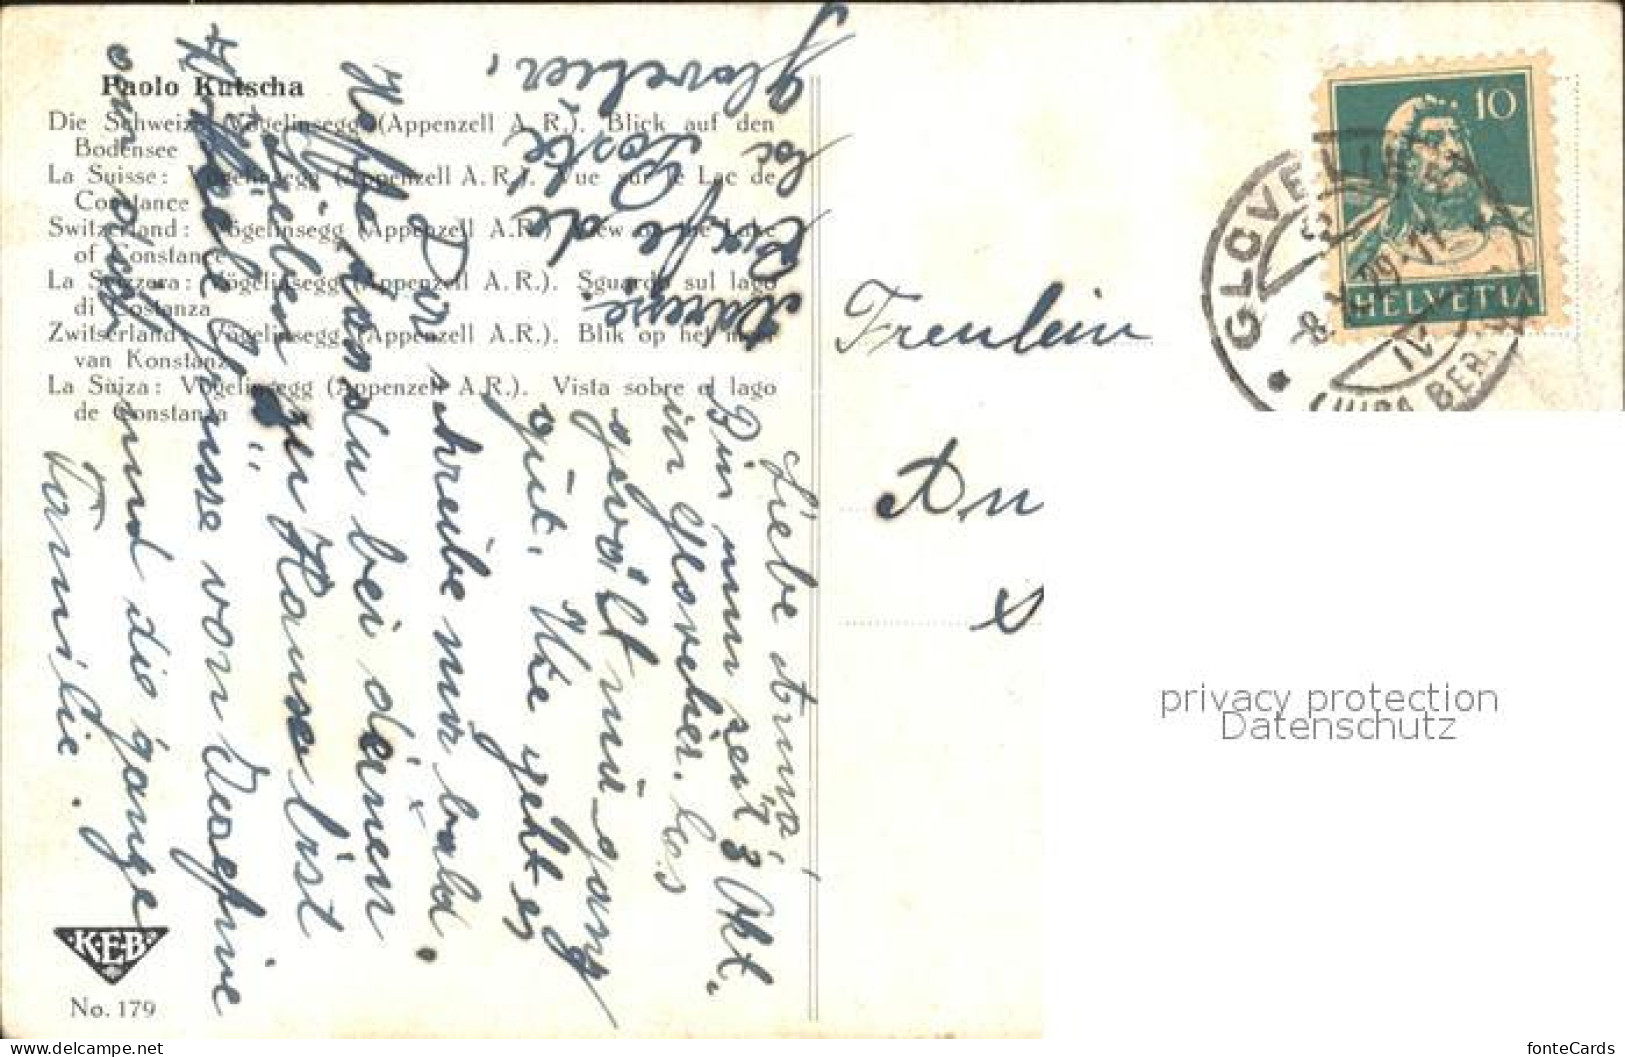 Paolo Kutscha
Die Schweiz: Vögelinsegg (Appenzell A. R.). Blick auf den
Bodensee
La Suisse: Vögelinsegg (Appenzell A.R.). Vue sur le Lac de
Constance
Switzerland: Vögelinsegg (Appenzell A.R.) View on the Lake
of Constance
La Svizzera: Vögelinsegg (Appenzell A.R.). Sguardo sul lago
di Costanza
Zwitserland: Vögelinsegg (Appenzell A.R.). Blik op het meer
van Konstanz
La Suiza: Vögelinsegg (Appenzell A.R.). Vista sobre el lago
de Constanza
Liebe Anna,
Bin nun seit 3 Okt.
in Glovelier. Es
gevällt mir ganz
gut. Wie geht es
Dir schreibe mir bald.
Hoffe dass du bei deinen
Lieben zu Hause bist
Viele Grüsse von Josefine
und die ganze
Familie.
Adresse.
Café de
la Poste
Glovelier,
K·E·B
No. 179
Freulein
An
10
HELVETIA
GLOVELIER
-8. X. 29.-11
(JURA BERN)
privacy protection
Datenschutz
www.delcampe.net
fonteCards